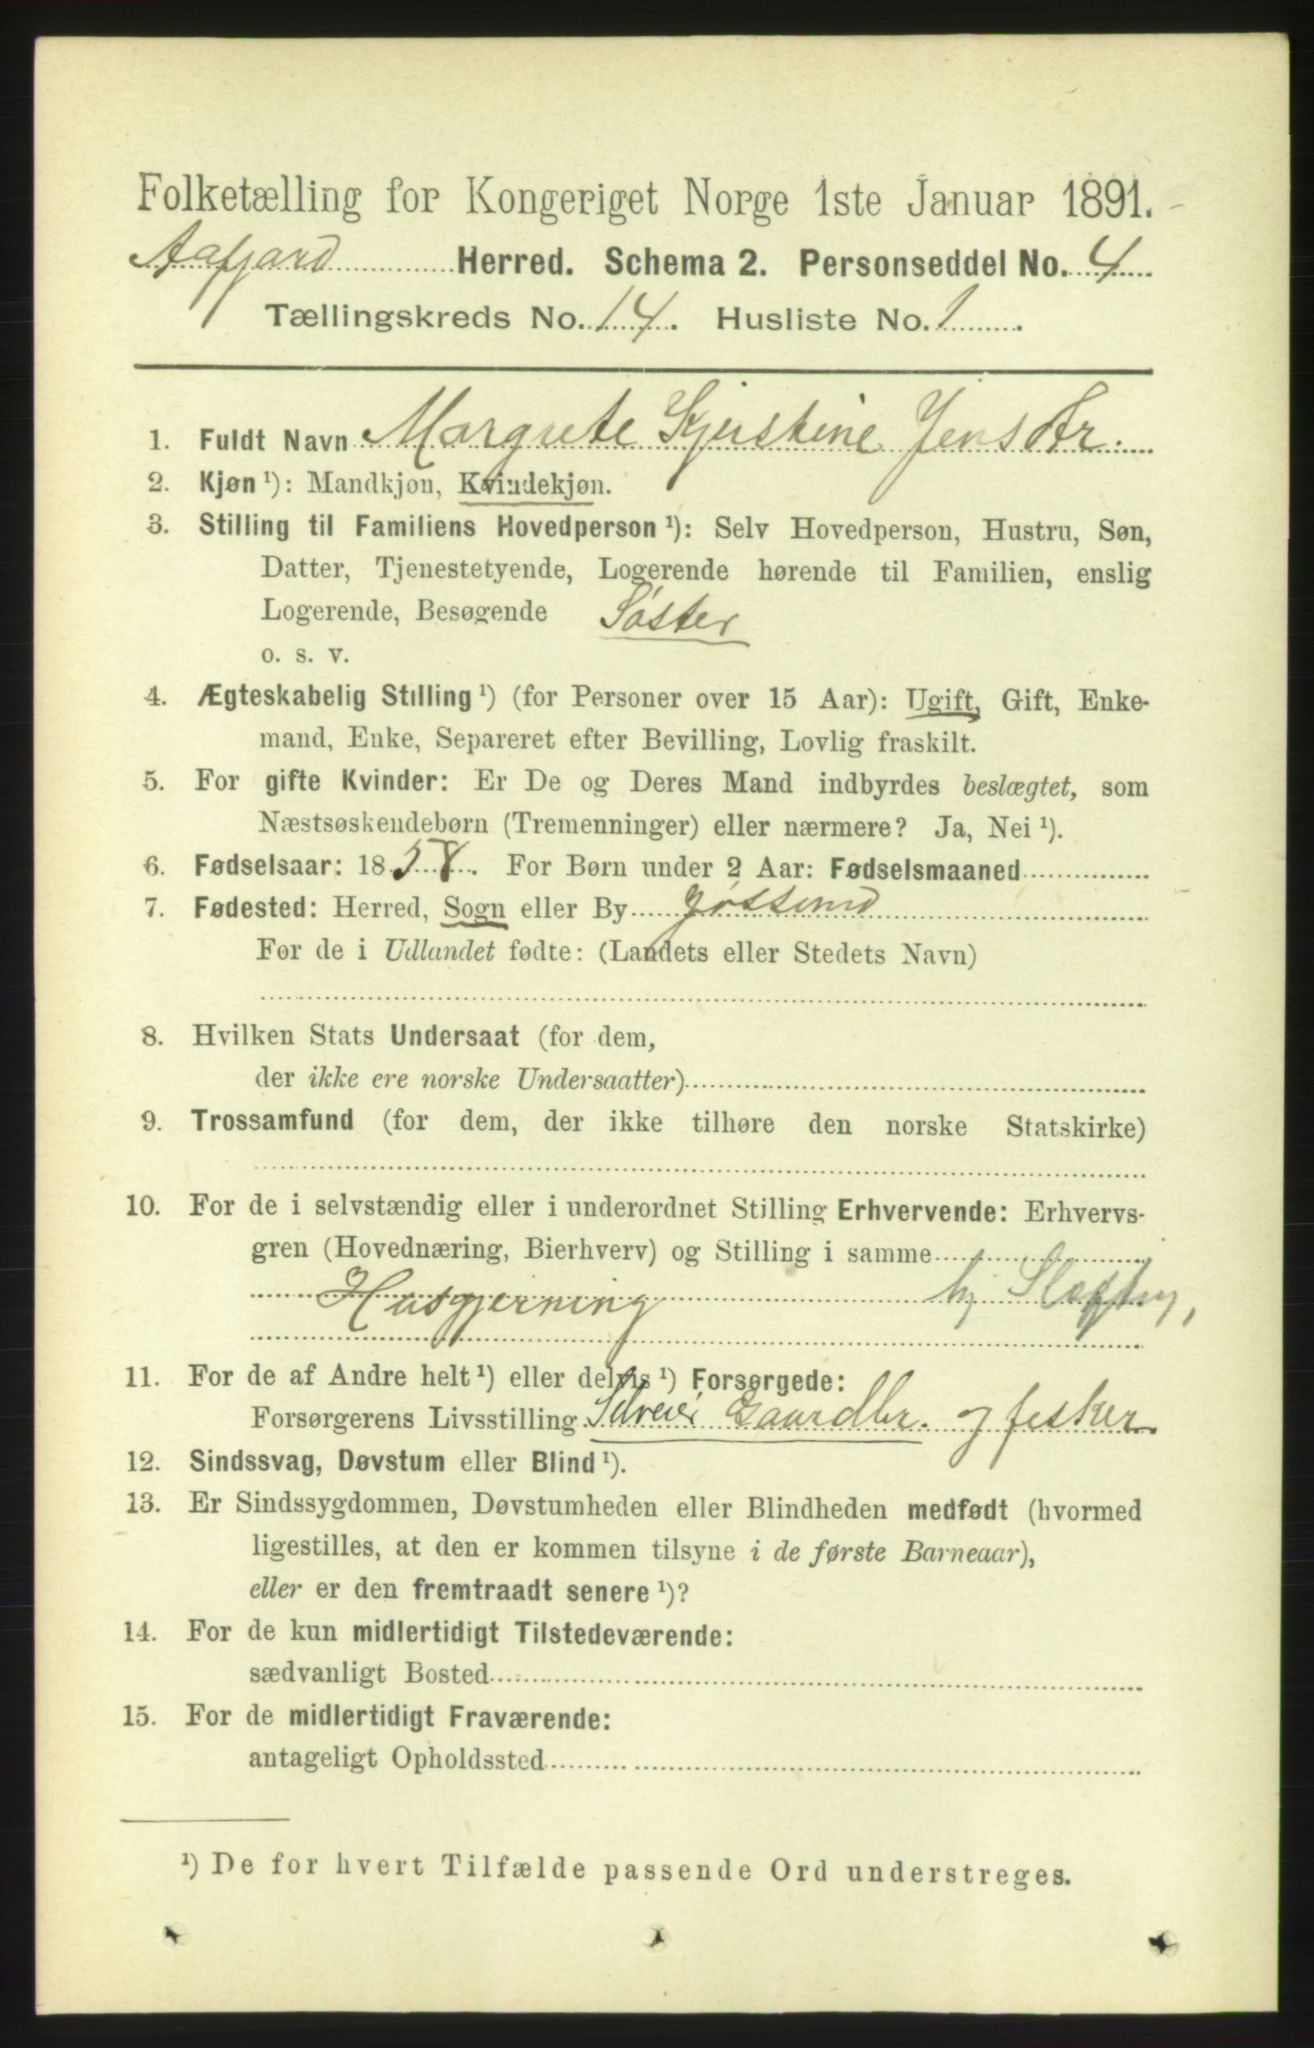 Folketælling for Kongeriget Norge 1ste Januar 1891.
Aafjord Herred. Schema 2. Personseddel No. 4
Tællingskreds No. 14. Husliste No. 1
1. Fuldt Navn Margrete Kjerstine Jensdtr.
2. Kjøn ¹): Mandkjøn, Kvindekjøn.
3. Stilling til Familiens Hovedperson ¹): Selv Hovedperson, Hustru, Søn,
Datter, Tjenestetyende, Logerende hørende til Familien, enslig
Logerende, Besøgende Søster
o. s. v.
4. Ægteskabelig Stilling ¹) (for Personer over 15 Aar): Ugift, Gift, Enke-
mand, Enke, Separeret efter Bevilling, Lovlig fraskilt.
5. For gifte Kvinder: Er De og Deres Mand indbyrdes beslægtet, som
Næstsøskendebørn (Tremenninger) eller nærmere? Ja, Nei ¹).
6. Fødselsaar: 1858. For Børn under 2 Aar: Fødselsmaaned
7. Fødested: Herred, Sogn eller By Jøssund
For de i Udlandet fødte: (Landets eller Stedets Navn)
8. Hvilken Stats Undersaat (for dem,
der ikke ere norske Undersaatter)
9. Trossamfund (for dem, der ikke tilhøre den norske Statskirke)
10. For de i selvstændig eller i underordnet Stilling Erhvervende: Erhvervs-
gren (Hovednæring, Bierhverv) og Stilling i samme
Husgjerning hj Slægtn,
11. For de af Andre helt ¹) eller delvis ¹) Forsørgede:
Forsørgerens Livsstilling Selveier Gaardbr. og fisker
12. Sindssvag, Døvstum eller Blind ¹).
13. Er Sindssygdommen, Døvstumheden eller Blindheden medfødt (hvormed
ligestilles, at den er kommen tilsyne i de første Barneaar),
eller er den fremtraadt senere ¹)?
14. For de kun midlertidigt Tilstedeværende:
sædvanligt Bosted
15. For de midlertidigt Fraværende:
antageligt Opholdssted
¹) De for hvert Tilfælde passende Ord understreges.